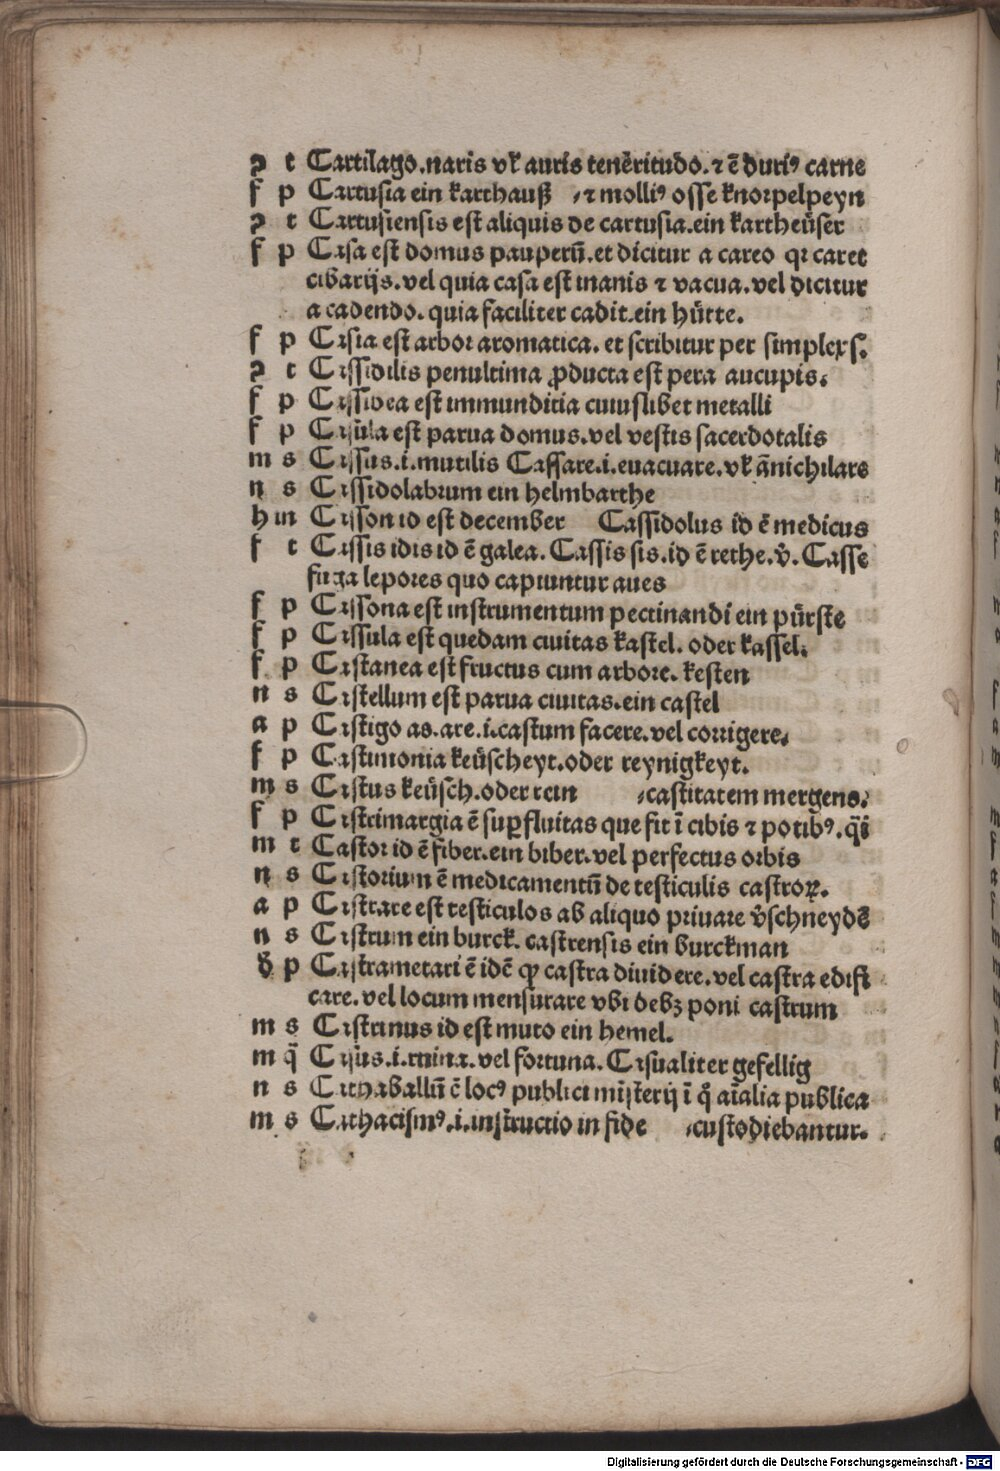 ꝛ t Cartilago.naris vł auris tenēritudo.⁊ ē duriꝰ carne
f p Cartusia ein karthauß ⸗⁊ molliꝰ osse knorpelpeyn
ꝛ t Cartusiensis est aliquis de cartusia.ein kartheüser
f p Casa est domus pauperū.et dicitur a careo qꝛ caret
cibarijs.vel quia casa est inanis ⁊ vacua.vel dicitur
a cadendo. quia faciliter cadit.ein hütte.
f p Casia est arbor aromatica. et scribitur per simplex s.
ꝛ t Cassidilis penultima ꝓducta est pera aucupis.
f p Cassidea est immunditia cuiuslibet metalli
f p Casula est parua domus.vel vestis sacerdotalis
m s Cassus.i.mutilis Cassare.i.euacuare.vł ānichilare
n s Cassidolabrum ein helmbarthe
h in Casson id est december Cassidolus id ē medicus
f t Cassis idis id ē galea. Cassis sis.id ē rethe.v̄. Casse
fuga lepores quo capiuntur aues
f p Cassona est instrumentum pectinandi ein pürste
f p Cassula est quedam ciuitas kastel. oder kassel.
f p Castanea est fructus cum arbore. kesten
n s Castellum est parua ciuitas.ein castel
a p Castigo as.are.i.castum facere.vel corrigere.
f p Castimonia keüscheyt.oder reynigkeyt.
m s Castus keüsch.oder rein ⸗castitatem mergens.
f p Castrimargia ē suꝑfluitas que fit ī cibis ⁊ potibꝰ.q̄si
m t Castor id ē fiber.ein biber.vel perfectus orbis
n s Castorium ē medicamentū de testiculis castroꝝ.
a p Castrare est testiculos ab aliquo priuare v̄schneydē
n s Castrum ein burck. castrensis ein burckman
d p Castrametari ē idē qp castra diuidere.vel castra edifi
care.vel locum mensurare vbi debꝫ poni castrum
m s Castrinus id est muto ein hemel.
m q̄ Casus.i.ruina.vel fortuna. Casualiter gefellig
n s Cathaballū ē locꝰ publici mīsterij ī q̊ aīalia publica
m s Cathacismꝰ.i.instructio in fide ⸗custodiebantur.
Digitalisierung gefördert durch die Deutsche Forschungsgemeinschaft - DFG